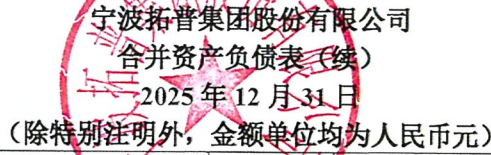 宁波拓普集团股份有限公司
合并资产负债表(续)
2025 年 12 月 31 日
(除特别注明外，金额单位均为人民币元)